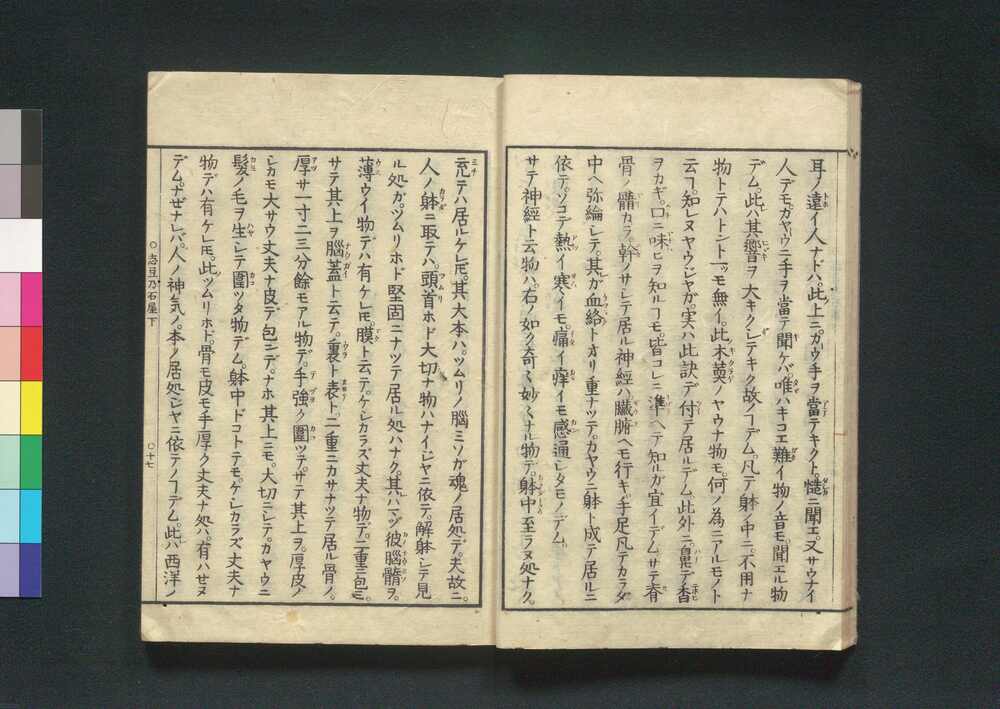 耳ノ遠イ人ナドハ。此上ニ。ガウ手ヲ當テキクト。慥ニ聞エ。又サウナイ
人デモ。カヤウニ手ヲ當テ聞ケバ。唯ハキコエ難イ物ノ音モ。聞エル物
デム。此ハ其響ヲ大キクシテキク故ノコデム。凡テ躰ノ中ニ。不用ナ
物トテハトント一ツモ無イ。此木耎ノヤウナ物モ。何ノ為ニアルモノト
云コ。知レヌヤウジヤガ。実ハ此訣デ付テ居ルデム。此外ニ。鼻デ香
ヲカギ。口ニ味ヒヲ知ルコモ。皆コレニ準ヘテ知ルガ宜イデム。サテ脊
骨ノ髓カラ。幹ノサシテ居ル神經ハ。臓腑ヘモ行キ。手足凡テカラダ
中ヘ弥綸シテ。其ガ血絡トオリ重ナツテ。カヤウニ躰ト成テ居ルニ
依テ。ソコデ熱イ寒イモ。痛イ痒イモ感通シタモノデム。
サテ神經ト云物ハ。右ノ如ク奇々妙々ナル物デ。躰中至ラヌ処ナク。
充テハ居ルケレ𪜈。其大本ハ。ツムリノ腦ミソガ魂ノ居処デ。夫故ニ。
人ノ躰ニ取テハ。頭首ホド大切ナ物ハナイジヤニ依テ。解躰シテ見
ル処ガ。ツムリホド堅固ニナツテ居ル処ハナク。其ハマヅ彼腦髓ヲ。
薄ウイ物デハ有ケレ𪜈。膜ト云テ。ケシカラズ丈夫ナ物デ。二重ニ包ミ。
サテ其上ヲ腦蓋ト云テ。裏ト表ト。二重ニカサナツテ居ル骨ノ。
厚サ一寸二三分餘モアル物デ。手強ク圍ツテ。サテ其上ヲ。厚皮ノ
シカモ大サウ丈夫ナ皮デ包ンデ。ナホ其上ニモ。大切ニシテ。カヤウニ
髮ノ毛ヲ生シテ圍ツタ物デム。躰中ドコトテモ。ケシカラズ丈夫ナ
物デハ有ケレ𪜈。此ツムリホド。骨モ皮モ手厚ク丈夫ナ処ハ。有ハセヌ
デム。ナゼナレバ。人ノ神気ノ。本ノ居処ジヤニ依テノコデム。此ハ西洋ノ
○志豆乃石屋下
○十七